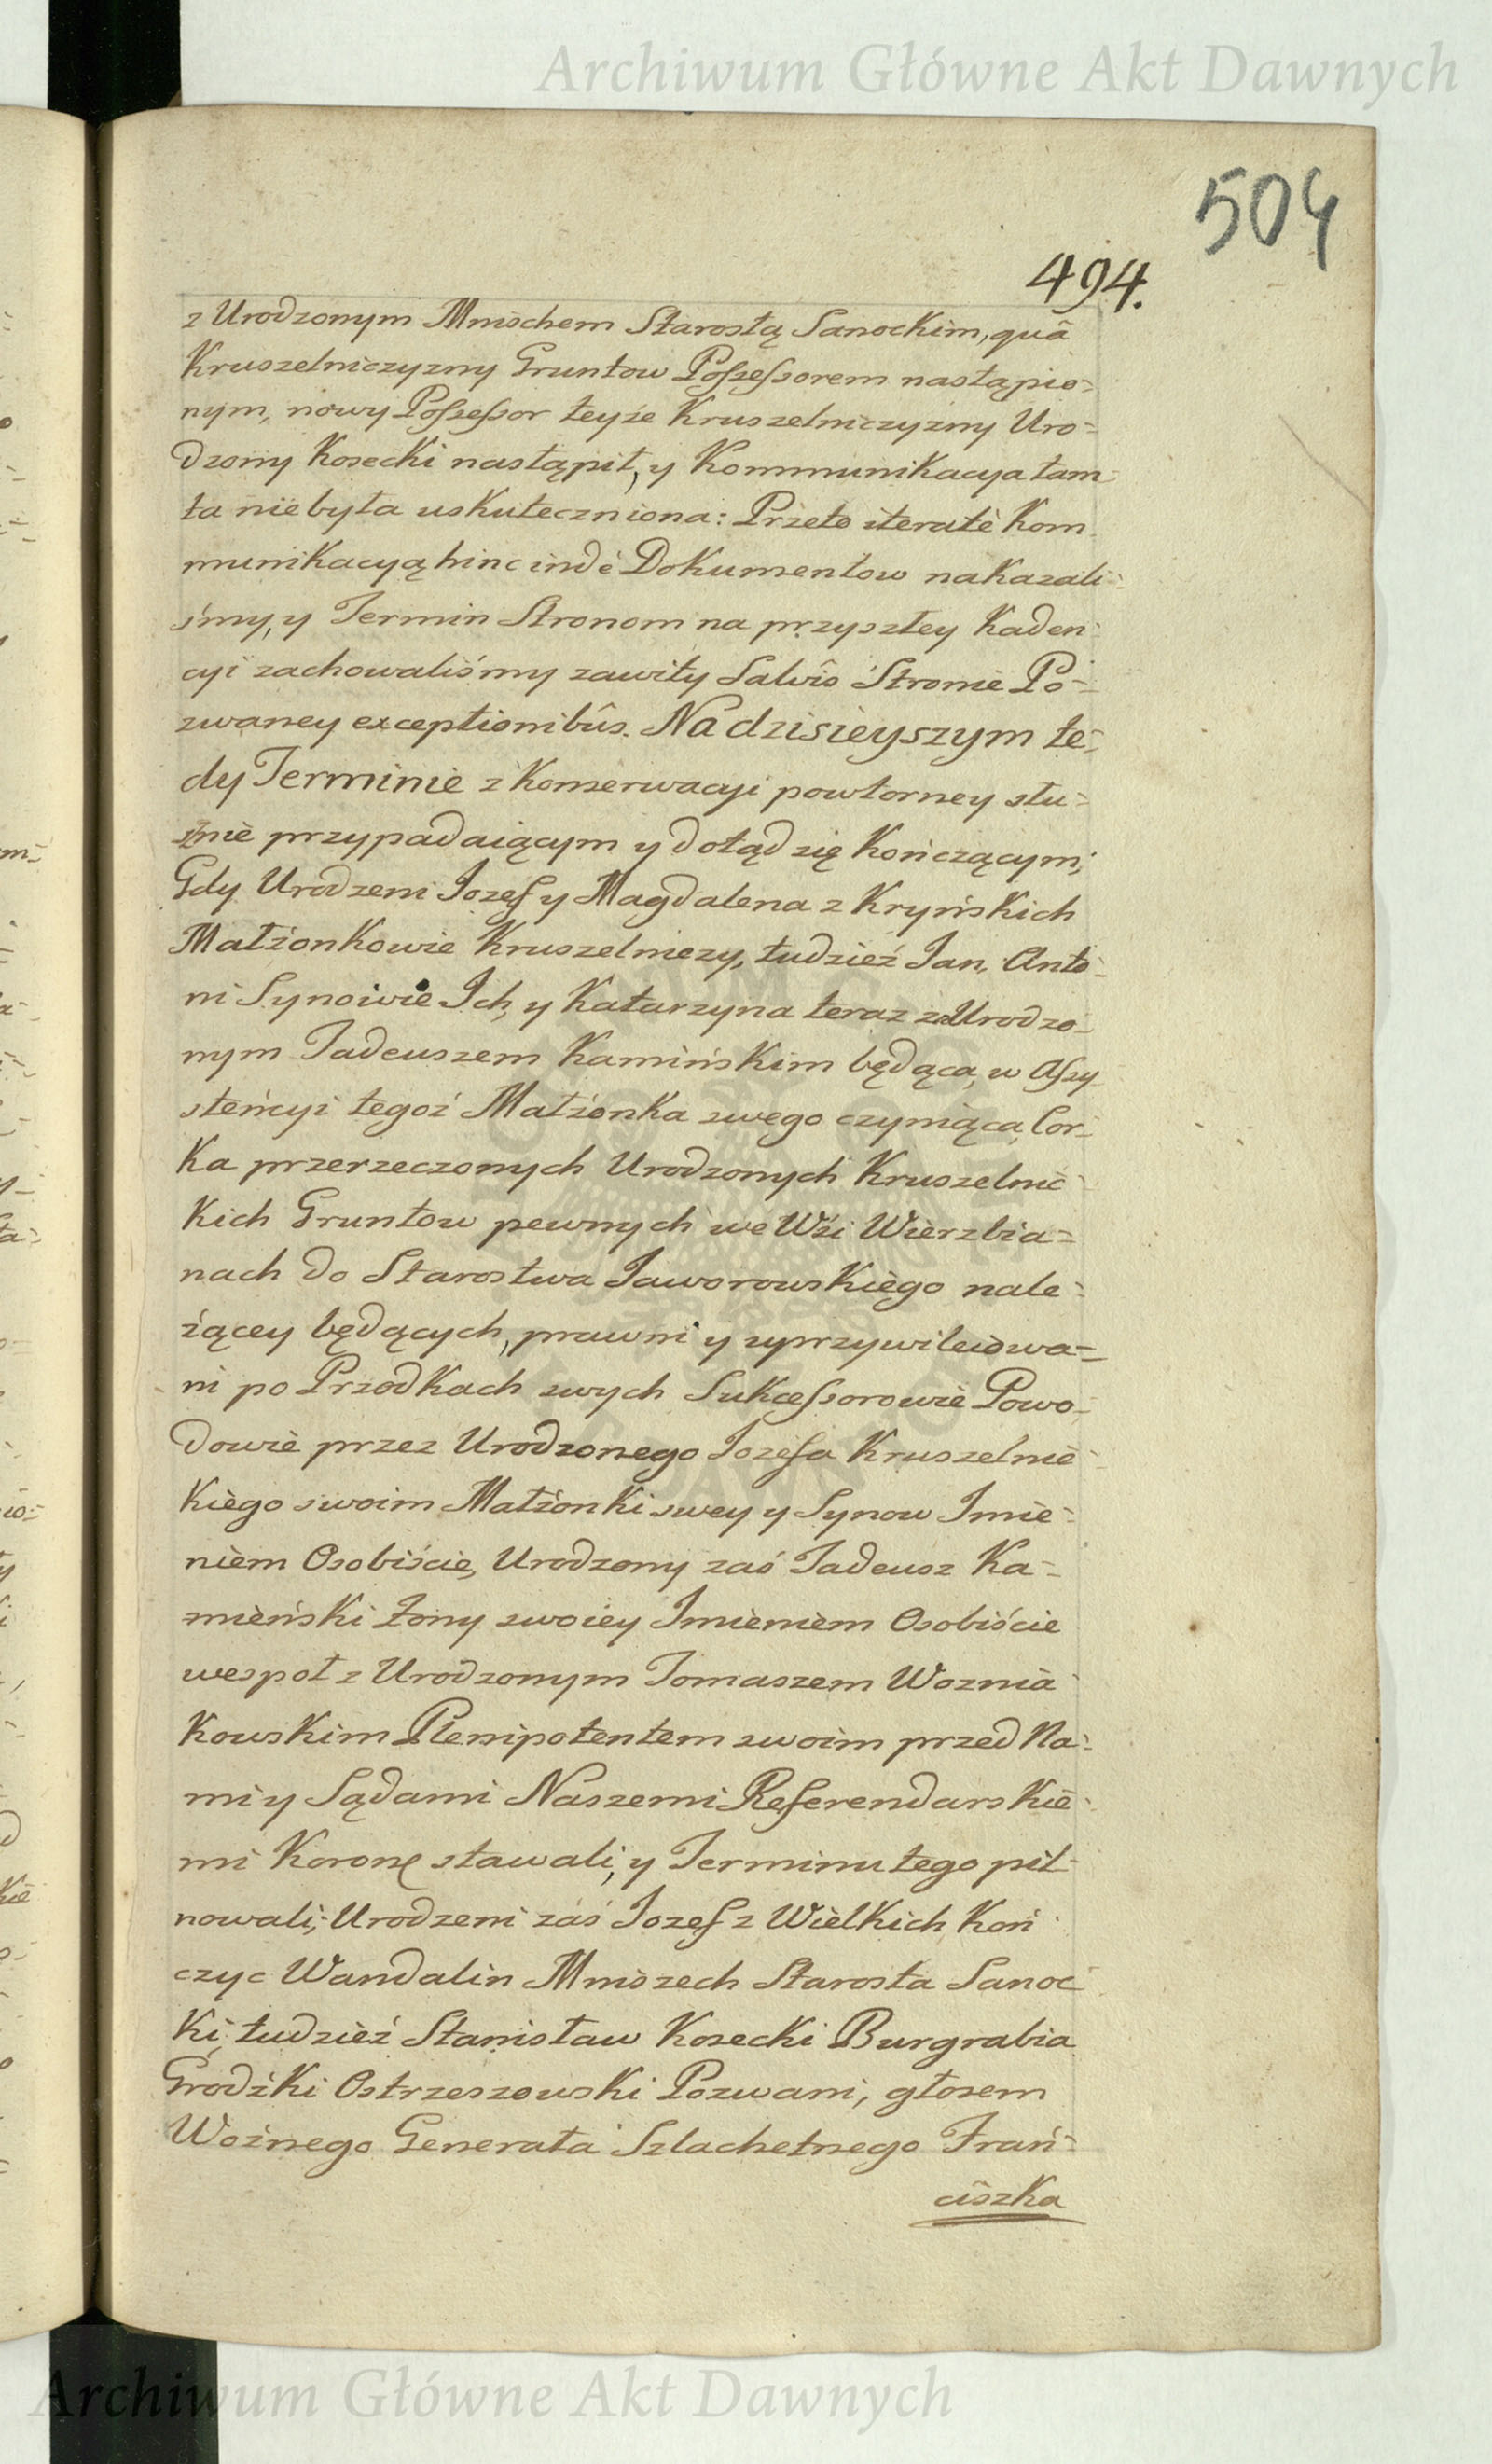 Archiwum Główne Akt Dawnych
504
494.
z Urodzonym Mniszchem Starostą Sanockim, quâ
Kruszelniczyzny Gruntow Possessorem nastąpio=
nym, nowy Possessor teyże Kruszelniczyzny Uro=
dzony Kosecki nastąpił, y Kommunikacya tam=
ta nie była uskuteczniona: Przeto iteratè Kom=
munikacyą hinc indè Dokumentow nakazali=
śmy, y Termin Stronom na przyszłey Kaden=
cyi zachowaliśmy zawity Salvîs Stronie Po=
zwaney exceptionibûs. Na dzisieyszym te=
dy Terminie z Konserwacyi powtorney słu=
sznie przypadaiącym y dotąd się kończącym;
Gdy Urodzeni Jozef y Magdalena z Kryńskich
Małżonkowie Kruszelniczy, tudzież Jan, Anto=
ni Synowie Ich, y Katarzyna teraz za Urodzo=
nym Tadeuszem Kamińskim będąca, w Assy=
stencyi tegoż Małżonka swego czyniąca, Cor=
ka przerzeczonych Urodzonych Kruszelnic=
kich Gruntow pewnych we Wsi Wierzbia=
nach do Starostwa Jaworowskiego nale=
żącey będących, prawni y uprzywileiowa=
ni po Przodkach swych Sukcessorowie Powo=
dowie przez Urodzonego Jozefa Kruszelnic=
kiego swoim Małżonki swey y Synow Imie=
niem Osobiście, Urodzony zaś Tadeusz Ka=
mieński Żony swoiey Imieniem Osobiście
wespoł z Urodzonym Tomaszem Woznia=
kowskim Plenipotentem swoim przed Na=
mi y Sądami Naszemi Referendarskie=
mi Koronę stawali, y Terminu tego pil=
nowali; Urodzeni zaś Jozef z Wielkich Koń=
czyc Wandalin Mniszech Starosta Sanoc=
ki, tudzież Stanisław Kosecki Burgrabia
Grodzki Ostrzeszowski Pozwani, głosem
Woźnego Generała Szlachetnego Fran=
ciszka
Archiwum Główne Akt Dawnych